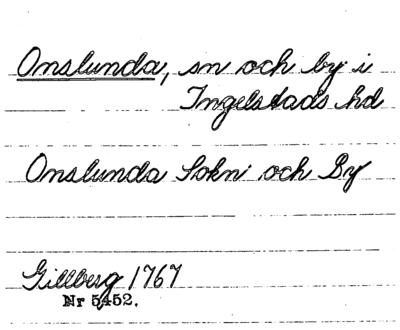 Onslunda, sn och by i
Ingelstads hd
Onslunda Sokn och By
Gillberg 1767
Nr 5452.